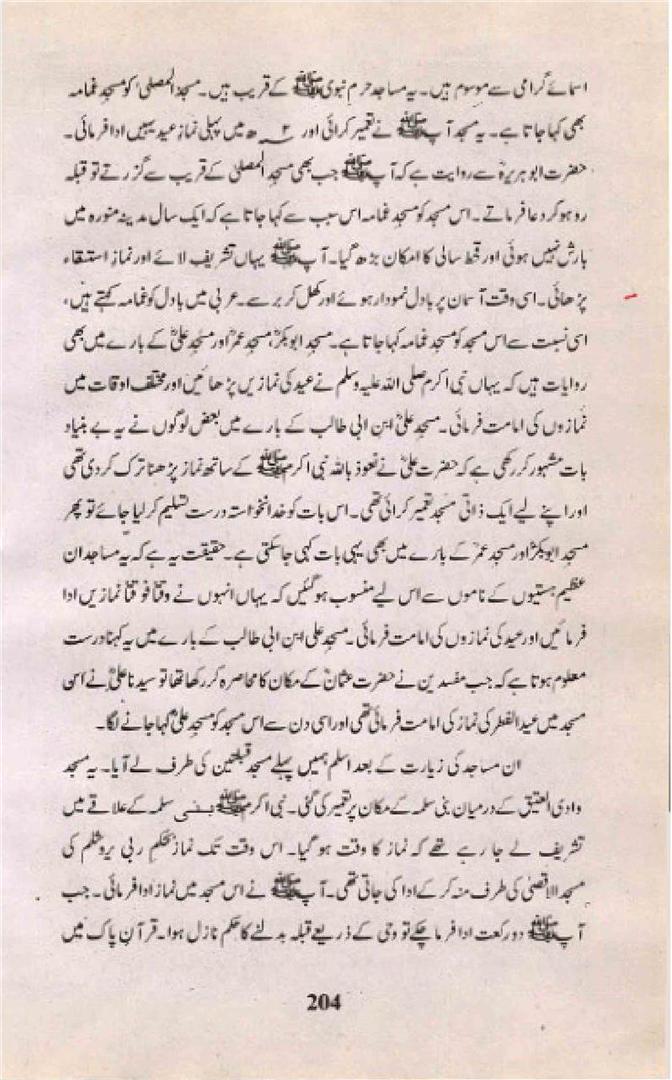 اسمائے گرامی سے موسوم ہیں۔ یہ مساجد حرم نبوی ﷺ کے قریب ہیں۔ مسجد المصلیٰ کو مسجد غمامہ
بھی کہا جاتا ہے۔ یہ مسجد آپ ﷺ نے تعمیر کرائی اور ۲ھ میں پہلی نماز عید یہیں ادا فرمائی۔
حضرت ابو ہریرہؓ سے روایت ہے کہ آپ ﷺ جب بھی مسجد المصلیٰ کے قریب سے گزرتے تو قبلہ
رو ہو کر دعا فرماتے۔ اس مسجد کو مسجد غمامہ اس سبب سے کہا جاتا ہے کہ ایک سال مدینہ منورہ میں
بارش نہیں ہوئی اور قحط سالی کا امکان بڑھ گیا۔ آپ ﷺ یہاں تشریف لائے اور نماز استسقاء
پڑھائی۔ اسی وقت آسمان پر بادل نمودار ہوئے اور کھل کر برسے۔ عربی میں بادل کو غمامہ کہتے ہیں،
اسی نسبت سے اس مسجد کو مسجد غمامہ کہا جاتا ہے۔ مسجد ابوبکرؓ، مسجد عمرؓ اور مسجد علیؓ کے بارے میں بھی
روایات ہیں کہ یہاں نبی اکرم صلی اللہ علیہ وسلم نے عید کی نمازیں پڑھائیں اور مختلف اوقات میں
نمازوں کی امامت فرمائی۔ مسجد علیؓ ابن ابی طالب کے بارے میں بعض لوگوں نے یہ بے بنیاد
بات مشہور کر رکھی ہے کہ حضرت علیؓ نے نعوذ باللہ نبی اکرم ﷺ کے ساتھ نماز پڑھنا ترک کر دی تھی
اور اپنے لیے ایک ذاتی مسجد تعمیر کرائی تھی۔ اس بات کو خدانخواستہ درست تسلیم کر لیا جائے تو پھر
مسجد ابوبکرؓ اور مسجد عمرؓ کے بارے میں بھی یہی بات کہی جا سکتی ہے۔ حقیقت یہ ہے کہ یہ مساجد ان
عظیم ہستیوں کے ناموں سے اس لیے منسوب ہو گئیں کہ یہاں انہوں نے وقتاً فوقتاً نمازیں ادا
فرمائیں اور عید کی نمازوں کی امامت فرمائی۔ مسجد علی ابن ابی طالب کے بارے میں یہ کہنا درست
معلوم ہوتا ہے کہ جب مفسدین نے حضرت عثمانؓ کے مکان کا محاصرہ کر رکھا تھا تو سیدنا علیؓ نے اسی
مسجد میں عید الفطر کی نماز کی امامت فرمائی تھی اور اسی دن سے اس مسجد کو مسجد علیؓ کہا جانے لگا۔
ان مساجد کی زیارت کے بعد اسلم ہمیں پہلے مسجد قبلتین کی طرف لے آیا۔ یہ مسجد
وادی العتیق کے درمیان بنی سلمہ کے مکان پر تعمیر کی گئی۔ نبی اکرم ﷺ بنی سلمہ کے علاقے میں
تشریف لے جا رہے تھے کہ نماز کا وقت ہو گیا۔ اس وقت تک نماز بحکم ربی یروشلم کی
مسجد الاقصیٰ کی طرف منہ کر کے ادا کی جاتی تھی۔ آپ ﷺ نے اس مسجد میں نماز ادا فرمائی۔ جب
آپ ﷺ دو رکعت ادا فرما چکے تو وحی کے ذریعے قبلہ بدلنے کا حکم نازل ہوا۔ قرآن پاک میں
204